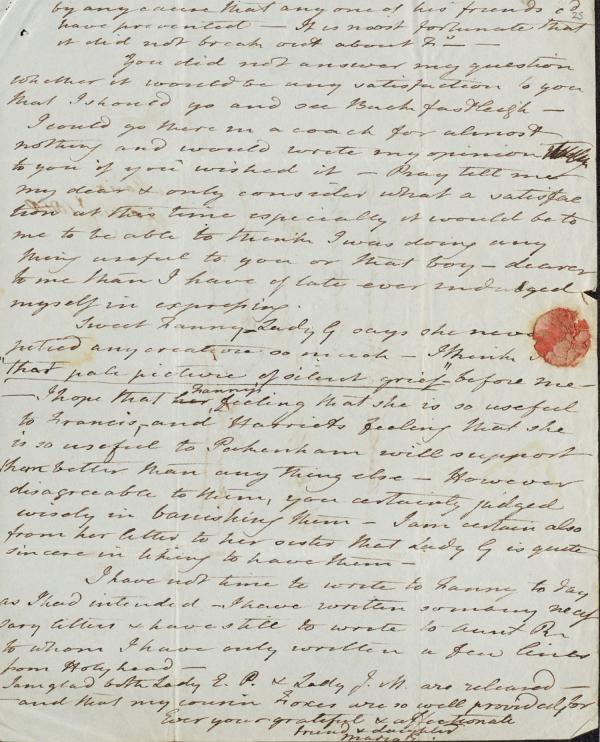 by any cause that any one of his friends cd
25
have prevented — It is most fortunate that
it did not break out about F: — —
You did not answer my question
whether it would be any satisfaction to you
that I should go and see Buckfastleigh —
I could go there in a coach for almost
nothing and would write my opinion
to you if you wished it — Pray tell me
my dear & only consider what a satisfac
tion at this time especially it would be to
me to be able to think I was doing any
thing useful to you or that boy — dearer
to me than I have of late ever indulged
myself in expressing.
Sweet Fanny — Lady G says she never
pitied any creature so much — I think I
"that pale picture of silent grief" before me —
— I hope that her Fanny's feeling that she is so useful
to Francis, and Harriets feeling that she
is so useful to Pakenham will support
them better than any thing else — However
disagreeable to them, you certainly judged
wisely in banishing them — I am certain also
from her letter to her sister that Lady G is quite
sincere in liking to have them —
I have not time to write to Fanny to day
as I had intended — I have written so many neces
sary letters & have still to write to Aunt Ru
to whom I have only written a few lines
from Holyhead —
I am glad both Lady E. P. & Lady J. M. are released —
and that my cousin Foxes are so well provided for
Ever your grateful & affectionate
friend & daughter
Maria E.